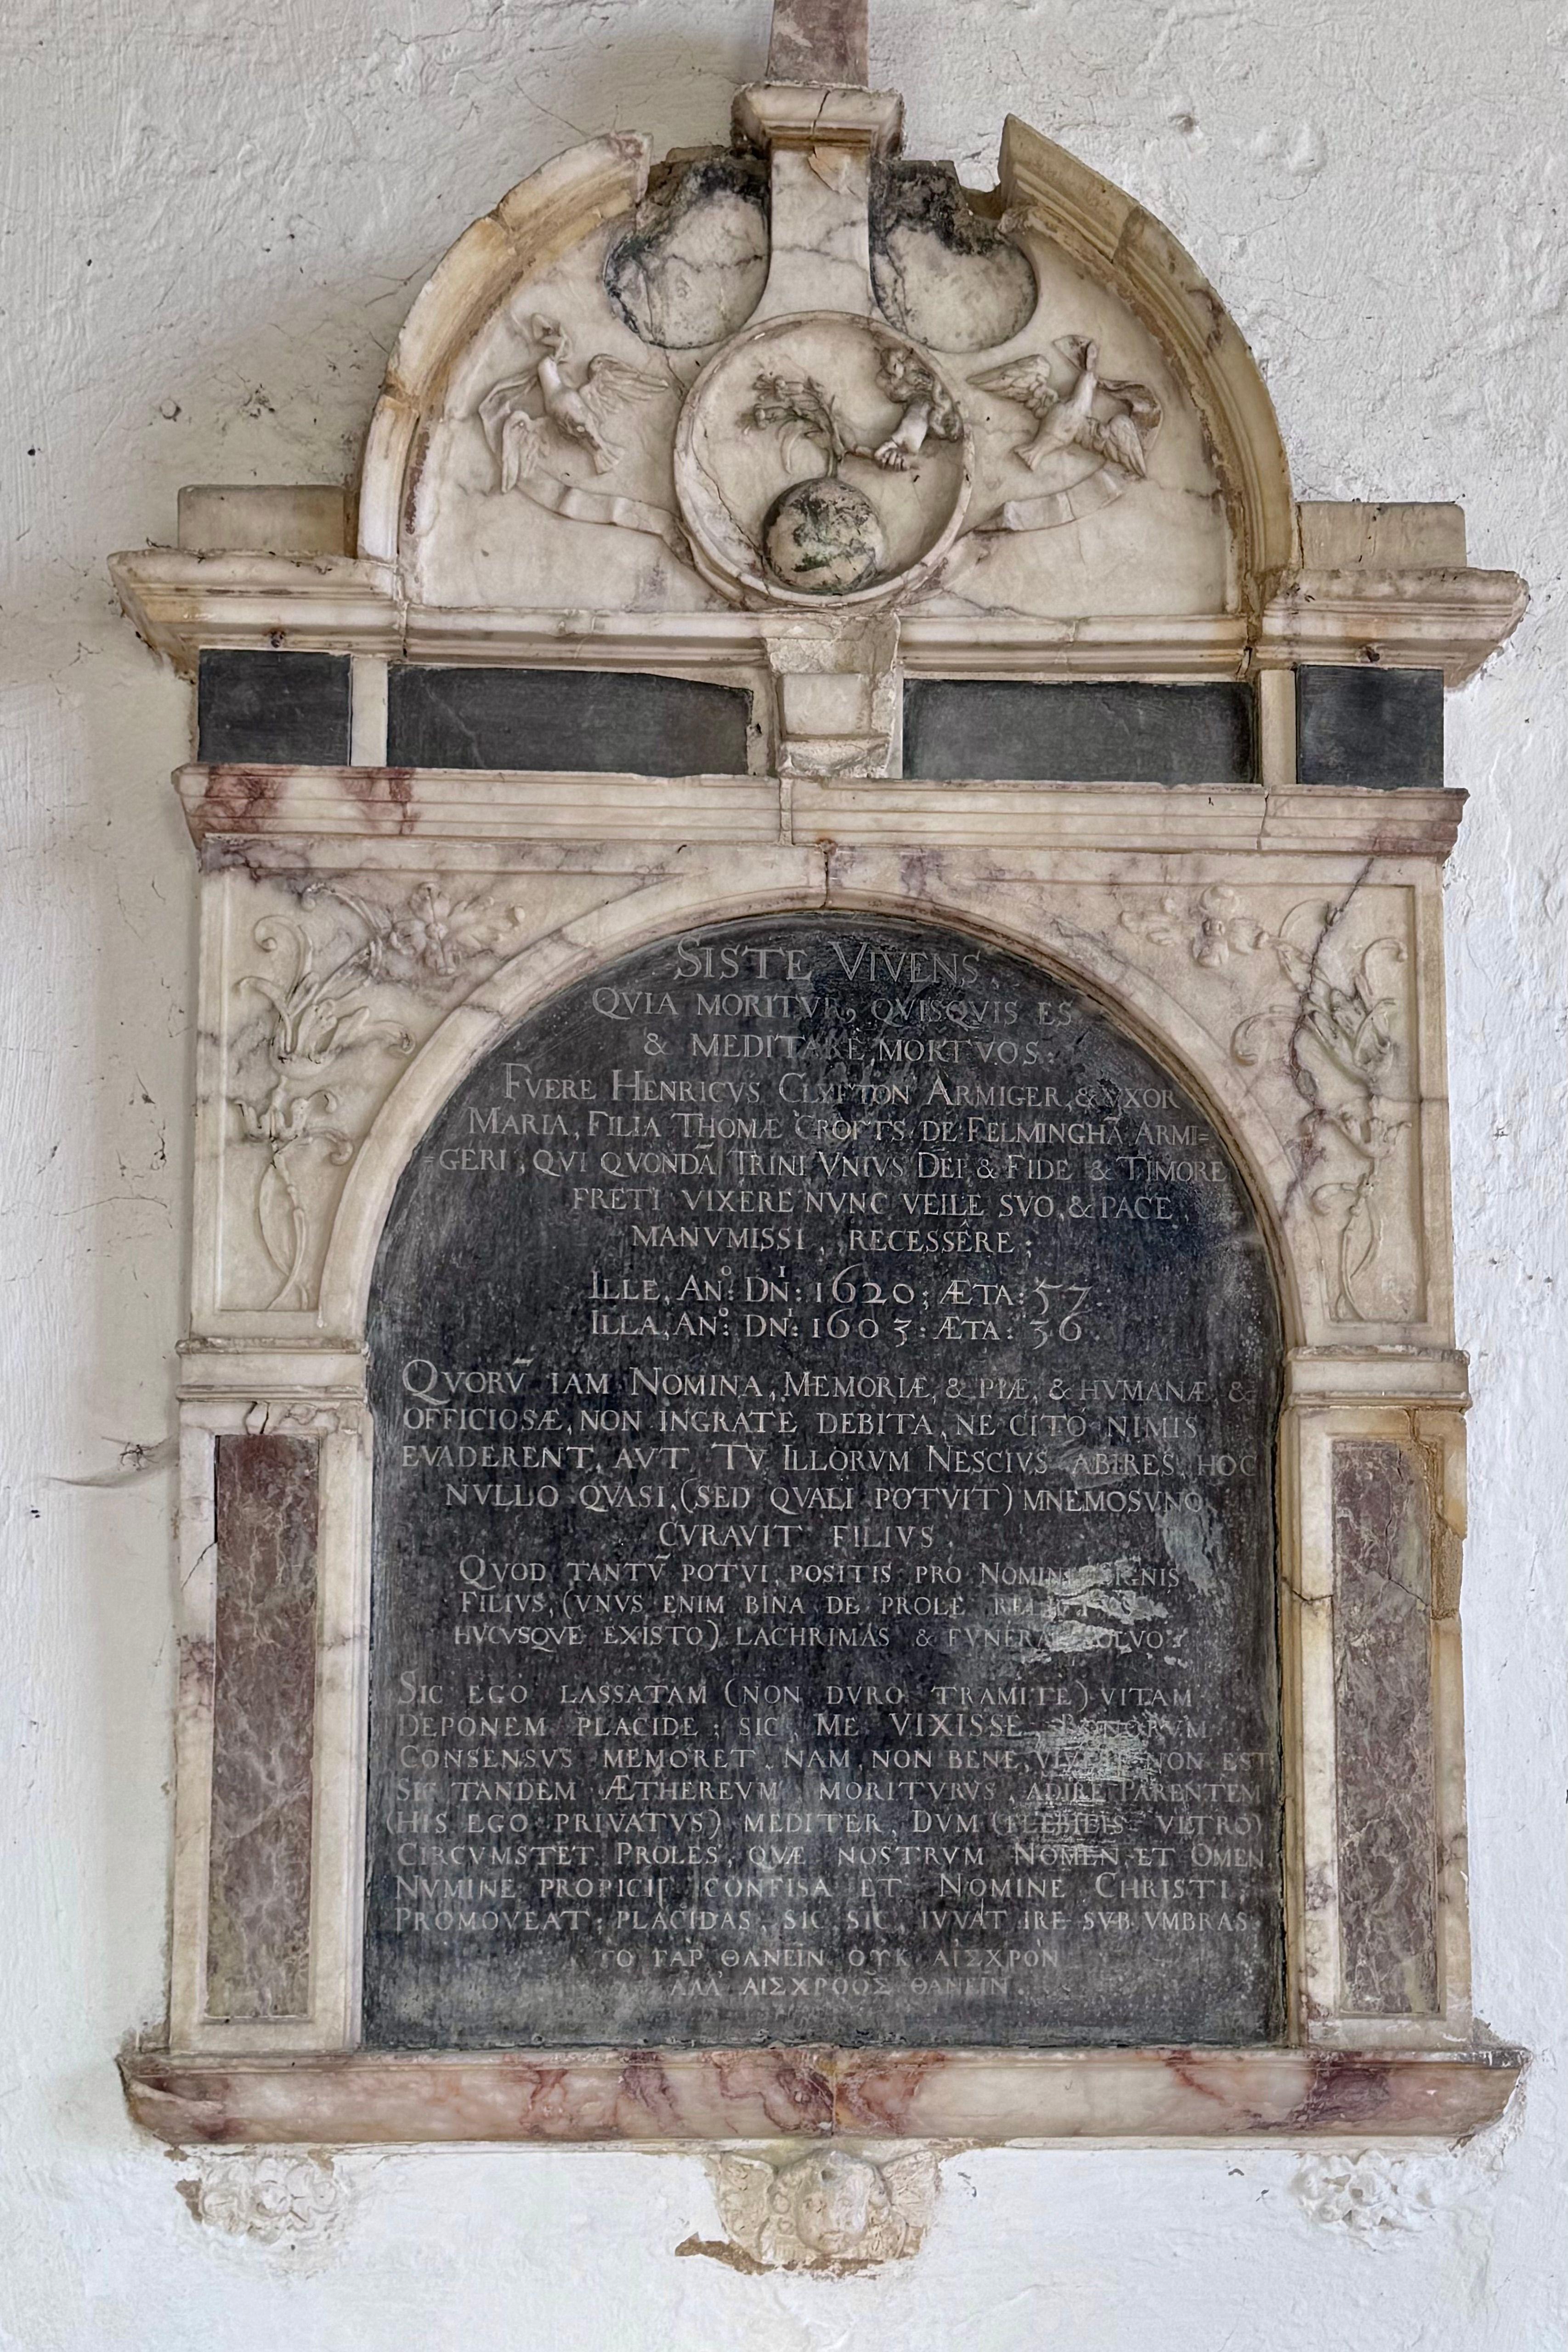 SISTE VIVENS
QVIA MORITVR, QVISQVIS ES
& MEDITARE MORTVOS:
FVERE HENRICVS CLYFTON ARMIGER, & VXOR
MARIA, FILIA THOMÆ CROFTS, DE FELMINGHĀ ARMI=
=GERI, QVI QVONDĀ TRINI VNIVS DEI, & FIDE & TIMORE
FRETI VIXERE NVNC VELLE SVO, & PACE,
MANVMISSI, RECESSÊRE;
ILLE, AN:º DN:ᴵ 1620; ÆTA: 57.
ILLA, AN:º DN:ᴵ 1603: ÆTA: 36.
QVORV̄ IAM NOMINA, MEMORIÆ, & PIÆ, & HVMANÆ, &
OFFICIOSÆ, NON INGRATE DEBITA, NE CITO NIMIS
EVADERENT, AVT TV ILLORVM NESCIVS ABIRES, HOC
NVLLO QVASI, (SED QVALI POTVIT) MNEMOSVNO,
CVRAVIT FILIVS.
QVOD TANTV̄ POTVI, POSITIS PRO NOMINE SIGNIS
FILIVS, (VNVS ENIM BINA DE PROLE
HVCVSQVE EXISTO) LACHRIMAS & FVNERA SOLVO:
SIC EGO LASSATAM (NON DVRO TRAMITE) VITAM
DEPONEM PLACIDE; SIC, ME VIXISSE, BONORVM
CONSENSVS MEMORET, NAM, NON BENE, VIVERE NON EST
SIC TANDEM ÆTHEREVM MORITVRVS, ADIRE PARENTEM
(HIS EGO PRIVATVS) MEDITER, DVM (FLEBILIS VLTRO)
CIRCVMSTET PROLES, QVÆ NOSTRVM NOMEN, ET OMEN,
NVMINE PROPICII CONFISA ET NOMINE CHRISTI,
PROMOVEAT; PLACIDAS, SIC, SIC, IVVAT IRE SVB VMBRAS.
ΤΟ ΓΑΡ ΘΑΝΕΙΝ ΟΥΚ ΑΙΣΧΡΟΝ
ΑΛΛ' ΑΙΣΧΡΟΟΣ ΘΑΝΕΙΝ.